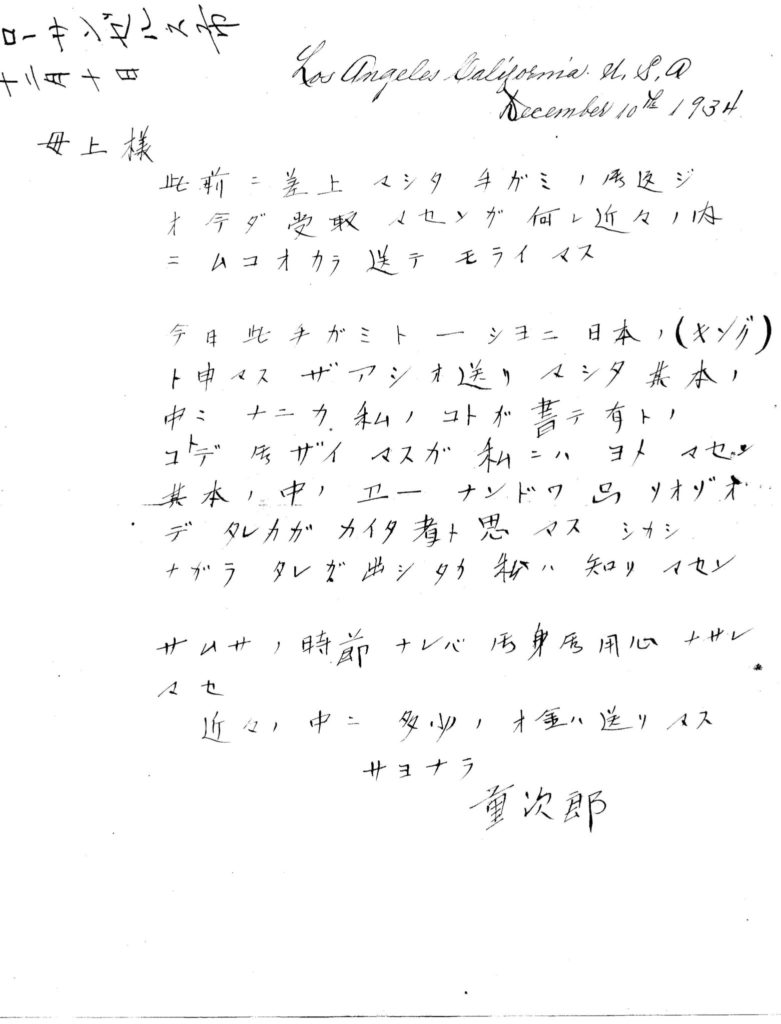 十二月十日
Los Angeles California. U. S. A
December 10th 1934
母上様
此前ニ差上 マシタ 手ガミノ 返ジ
オ 今ダ 受取 マセンガ 何レ近々ノ内
ニ ムコオカラ 送テ モライ マス
今日 此 手ガミト 一 シヨニ 日本ノ(キング)
ト申 マス ザアシオ送リ マシタ 其本ノ
中ニ ナニカ 私ノ コトガ 書テ有トノ
コトデ ザイ マスガ 私ニハ ヨメ マセン
其本ノ中ノ ナンドワ
デ タレカガ カイタ 者ト思 マス シカシ
ナガラ タレガ 出シタカ 私ハ 知リ マセン
サムサノ 時節 ナレバ 身 用心 ナサレ
マセ
近々ノ 中ニ 多少ノ オ金ハ 送リ マス
サヨナラ
重次郎